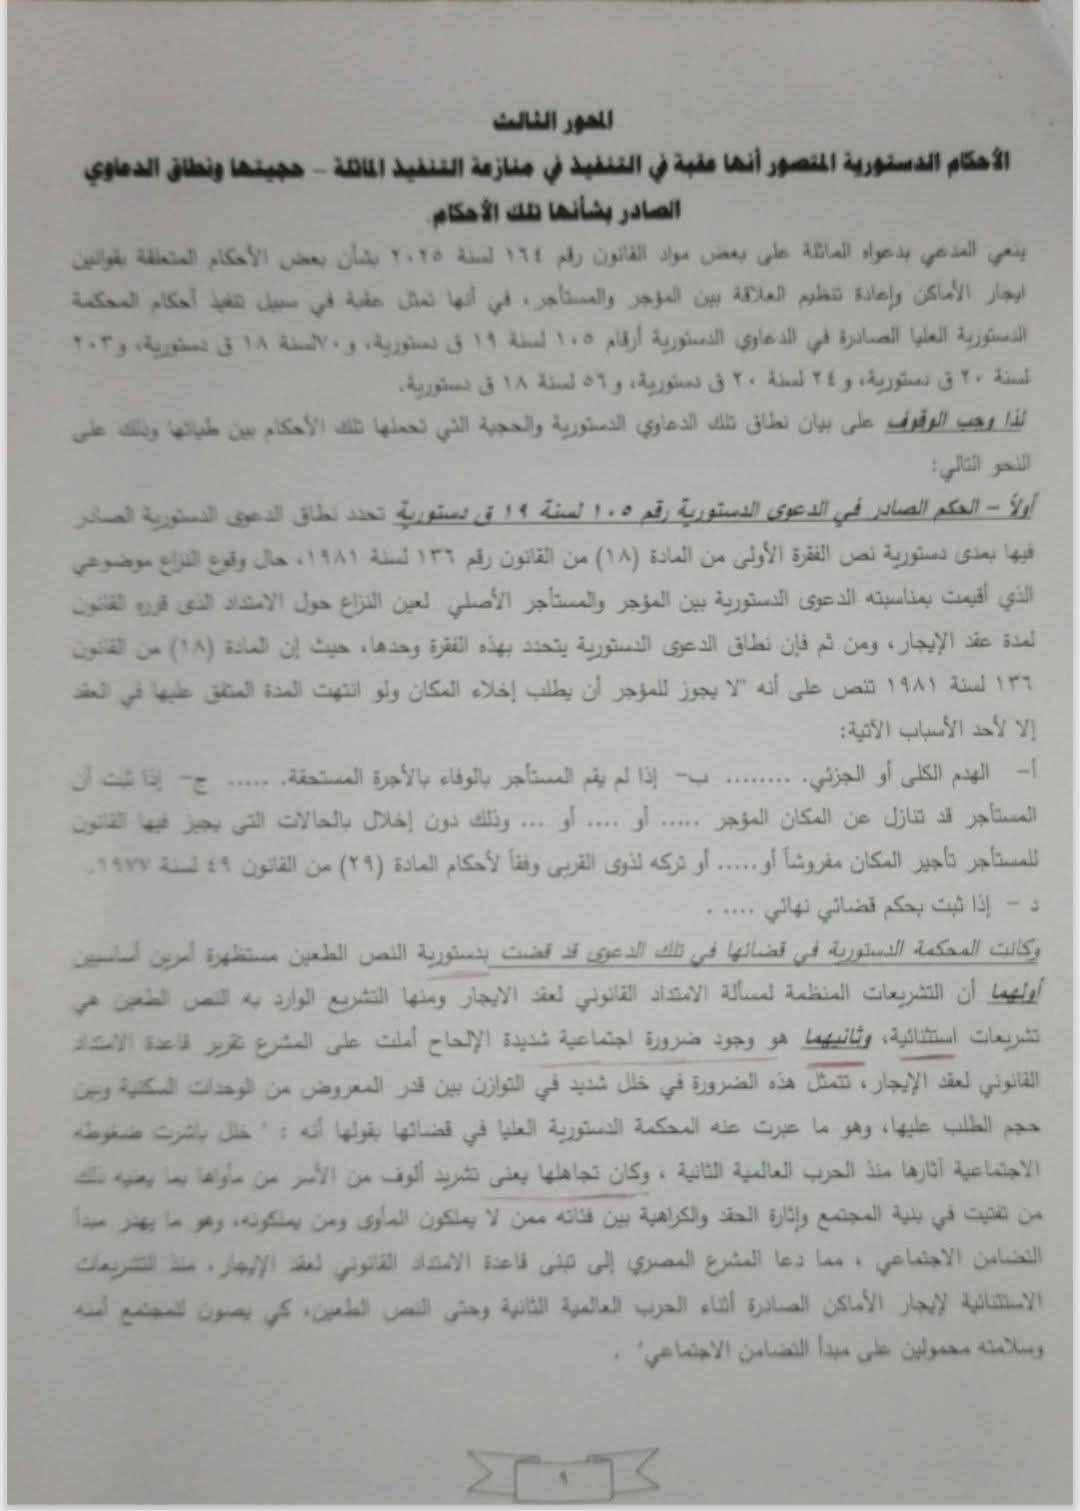 المحور الثالث
الأحكام الدستورية المتصور أنها عقبة في التنفيذ في منازعة التنفيذ الماثلة – حجيتها ونطاق الدعاوي
الصادر بشأنها تلك الأحكام.
ينعي المدعي بدعواه الماثلة على بعض مواد القانون رقم ١٦٤ لسنة ٢٠٢٥ بشأن بعض الأحكام المتعلقة بقوانين
ايجار الأماكن وإعادة تنظيم العلاقة بين المؤجر والمستأجر، في أنها تمثل عقبة في سبيل تنفيذ أحكام المحكمة
الدستورية العليا الصادرة في الدعاوي الدستورية أرقام ١٠٥ لسنة ١٩ ق دستورية، و٧٠لسنة ١٨ ق دستورية، و٢٠٣
لسنة ٢٠ ق دستورية، و٢٤ لسنة ٢٠ ق دستورية، و٥٦ لسنة ١٨ ق دستورية.
لذا وجب الوقوف على بيان نطاق تلك الدعاوي الدستورية والحجية التي تحملها تلك الأحكام بين طياتها وذلك على
النحو التالي:
أولاً – الحكم الصادر في الدعوى الدستورية رقم ١٠٥ لسنة ١٩ ق دستورية تحدد نطاق الدعوى الدستورية الصادر
فيها بمدى دستورية نص الفقرة الأولى من المادة (١٨) من القانون رقم ١٣٦ لسنة ١٩٨١، حال وقوع النزاع موضوعي
الذي أقيمت بمناسبته الدعوى الدستورية بين المؤجر والمستأجر الأصلي لعين النزاع حول الامتداد الذى قرره القانون
لمدة عقد الإيجار، ومن ثم فإن نطاق الدعوى الدستورية يتحدد بهذه الفقرة وحدها، حيث إن المادة (١٨) من القانون
١٣٦ لسنة ١٩٨١ تنص على أنه "لا يجوز للمؤجر أن يطلب إخلاء المكان ولو انتهت المدة المتفق عليها في العقد
إلا لأحد الأسباب الآتية:
أ– الهدم الكلى أو الجزئي. ........ ب– إذا لم يقم المستأجر بالوفاء بالأجرة المستحقة. ..... ج– إذا ثبت أن
المستأجر قد تنازل عن المكان المؤجر ..... أو .... أو ... وذلك دون إخلال بالحالات التى يجيز فيها القانون
للمستأجر تأجير المكان مفروشاً أو..... أو تركه لذوى القربى وفقاً لأحكام المادة (٢٩) من القانون ٤٩ لسنة ١٩٧٧.
د – إذا ثبت بحكم قضائي نهائي .... .
وكانت المحكمة الدستورية في قضائها في تلك الدعوى قد قضت بدستورية النص الطعين مستظهرة أمرين أساسيين
أولهما أن التشريعات المنظمة لمسألة الامتداد القانوني لعقد الايجار ومنها التشريع الوارد به النص الطعين هي
تشريعات استثنائية، وثانيهما هو وجود ضرورة اجتماعية شديدة الإلحاح أملت على المشرع تقرير قاعدة الامتداد
القانوني لعقد الإيجار، تتمثل هذه الضرورة في خلل شديد في التوازن بين قدر المعروض من الوحدات السكنية وبين
حجم الطلب عليها، وهو ما عبرت عنه المحكمة الدستورية العليا في قضائها بقولها أنه : " خلل باشرت ضغوطه
الاجتماعية آثارها منذ الحرب العالمية الثانية ، وكان تجاهلها يعنى تشريد ألوف من الأسر من مأواها بما يعنيه ذلك
من تفتيت في بنية المجتمع وإثارة الحقد والكراهية بين فئاته ممن لا يملكون المأوى ومن يملكونه، وهو ما يهدر مبدأ
التضامن الاجتماعي ، مما دعا المشرع المصري إلى تبنى قاعدة الامتداد القانوني لعقد الإيجار، منذ التشريعات
الاستثنائية لإيجار الأماكن الصادرة أثناء الحرب العالمية الثانية وحتى النص الطعين، كي يصون للمجتمع أمنه
وسلامته محمولين على مبدأ التضامن الاجتماعي" .
٩